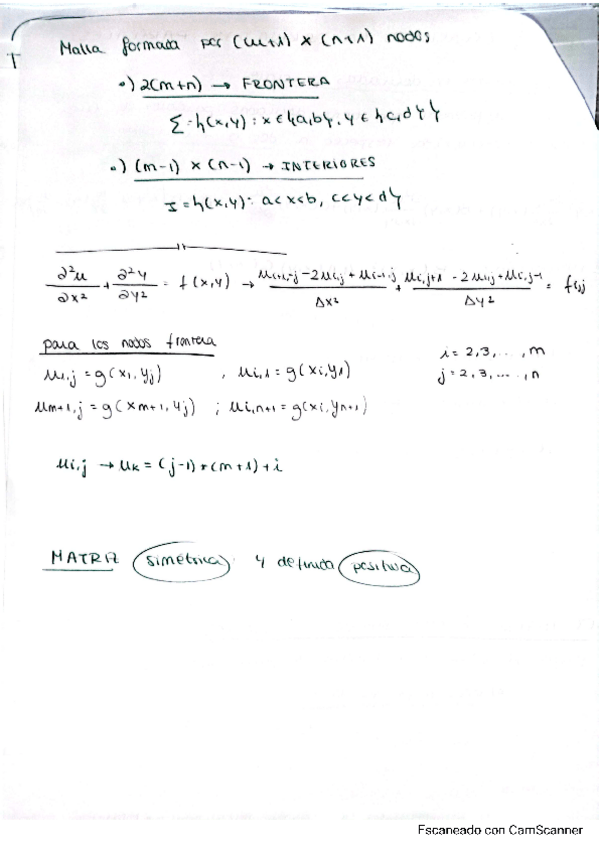 Malla formada por (m+1) x (n+1) nodos
•) 2(m+n) → FRONTERA
Σ = {(x,y) : x ∈ {a,b}, y ∈ {c,d}}
•) (m-1) x (n-1) → INTERIORES
I = {(x,y) : a<x<b, c<y<d}
∂²u/∂x² + ∂²y/∂y² = f(x,y) → (u_{i+1,j} - 2u_{i,j} + u_{i-1,j})/Δx² + (u_{i,j+1} - 2u_{i,j} + u_{i,j-1})/Δy² = f_{i,j}
para los nodos frontera
u_{1,j} = g(x_1, y_j) , u_{i,1} = g(x_i, y_1) i = 2,3,...,m
u_{m+1,j} = g(x_{m+1}, y_j) ; u_{i,n+1} = g(x_i, y_{n+1}) j = 2,3,...,n
u_{i,j} → u_k = (j-1)*(m+1)+i
MATRIZ simétrica y definida positiva
Escaneado con CamScanner